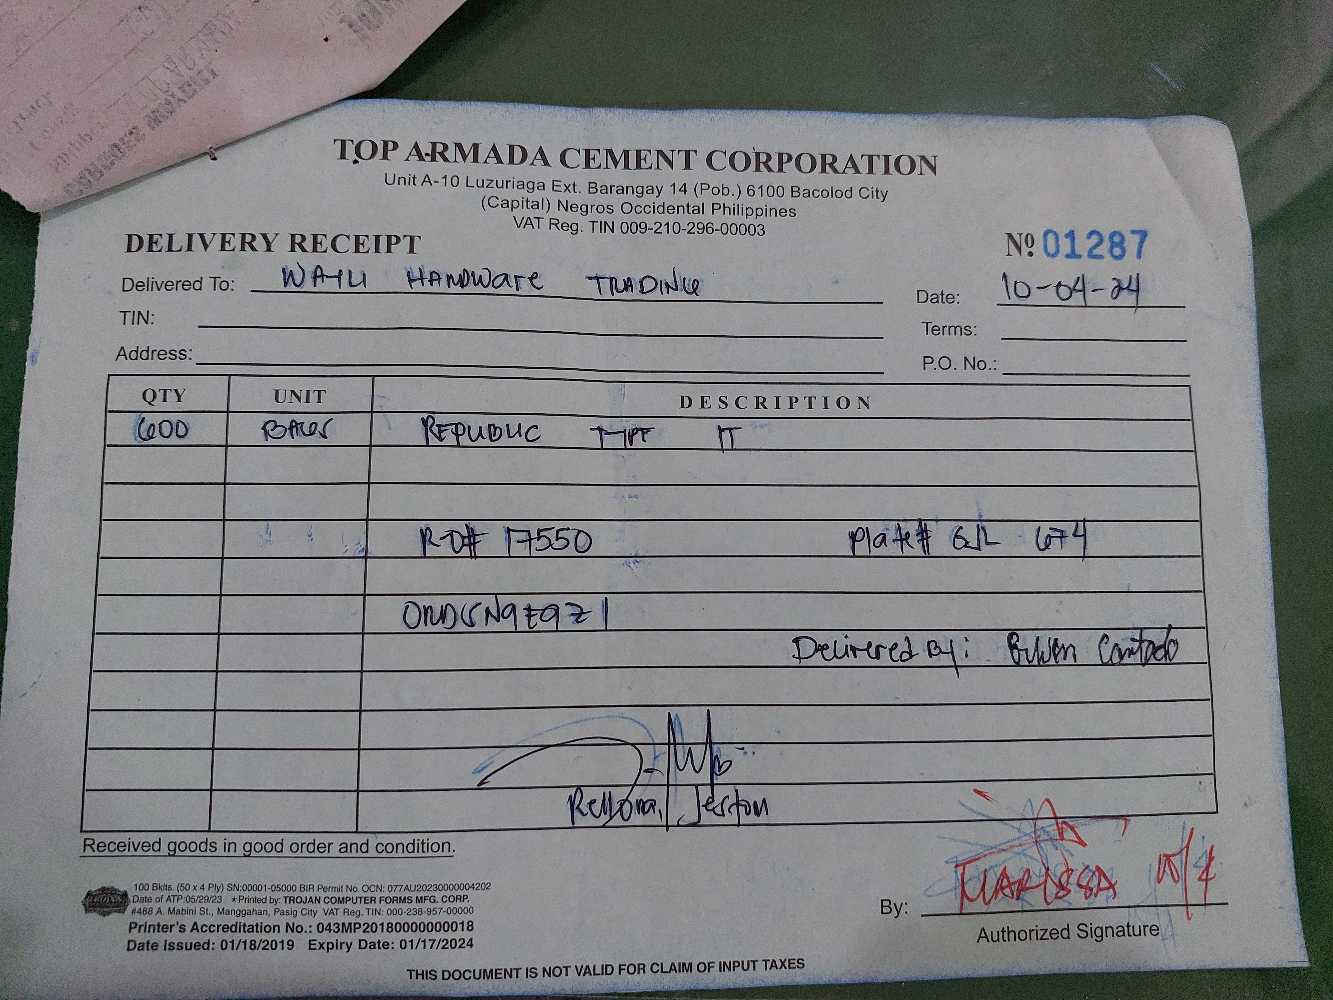 TOP ARMADA CEMENT CORPORATION
Unit A-10 Luzuriaga Ext. Barangay 14 (Pob.) 6100 Bacolod City
(Capital) Negros Occidental Philippines
VAT Reg. TIN 009-210-296-00003
DELIVERY RECEIPT
Nº 01287
Delivered To: WAYLI HARDWare TRADING
Date: 10-04-24
TIN:
Terms:
Address:
P.O. No.:
QTY UNIT DESCRIPTION
600 BAGS REPUBLIC TYPE IT
RO# 17550 Plate# 674
Delivered By: Contado
Jeston
Received goods in good order and condition.
100 Bklts. (50 x 4 Ply) SN:00001-05000 BIR Permit No. OCN: 077AU20230000004202
Date of ATP:05/29/23 * Printed by: TROJAN COMPUTER FORMS MFG. CORP.
#468 A. Mabini St., Manggahan, Pasig City VAT Reg. TIN: 000-238-957-00000
Printer's Accreditation No.: 043MP20180000000018
Date Issued: 01/18/2019 Expiry Date: 01/17/2024
By: MARISSA 10/4
Authorized Signature
THIS DOCUMENT IS NOT VALID FOR CLAIM OF INPUT TAXES